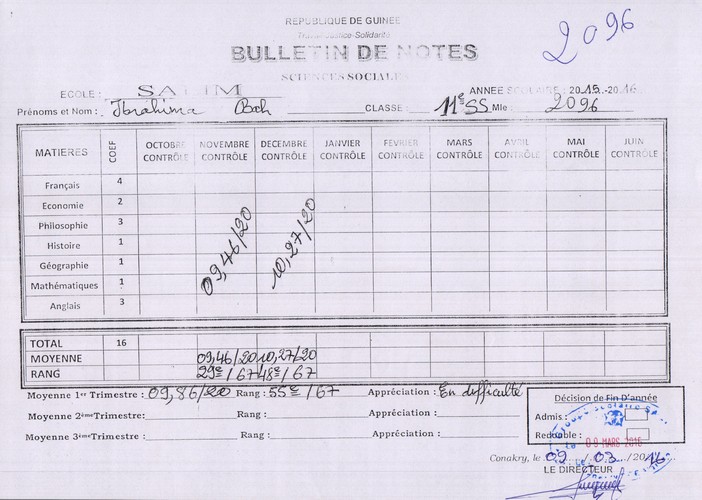 REPUBLIQUE DE GUINEE
Travail-Justice-Solidarité
2096
BULLETIN DE NOTES
SCIENCES SOCIALES
ECOLE : SALIM ANNEE SCOLAIRE : 2015.-2016.
Prénoms et Nom : Ibrahima Bah CLASSE : 11e SS Mle : 2096
MATIERES COEF OCTOBRE CONTRÔLE NOVEMBRE CONTRÔLE DECEMBRE CONTRÔLE JANVIER CONTRÔLE FEVRIER CONTRÔLE MARS CONTRÔLE AVRIL CONTRÔLE MAI CONTRÔLE JUIN CONTRÔLE
Français 4
Economie 2
Philosophie 3
Histoire 1
Géographie 1
Mathématiques 1
Anglais 3
09,46/20 10,27/20
TOTAL 16
MOYENNE 09,46/20 10,27/20
RANG 29e/67 48e/67
Moyenne 1er Trimestre : 09,86/20 Rang : 55e/67 Appréciation : En difficulté
Moyenne 2ème Trimestre: Rang : Appréciation :
Moyenne 3ème Trimestre : Rang : Appréciation :
Décision de Fin D'année
Admis :
Redouble :
09 MARS 2016
Conakry, le 09/03/2016
LE DIRECTEUR